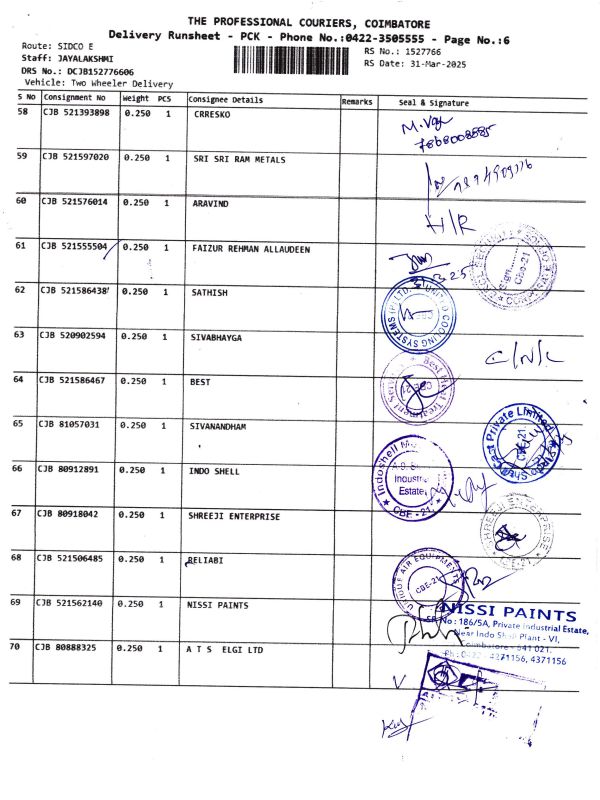 THE PROFESSIONAL COURIERS, COIMBATORE
Delivery Runsheet - PCK - Phone No.:0422-3505555 - Page No.:6
Route: SIDCO E
RS No.: 1527766
Staff: JAYALAKSHMI
RS Date: 31-Mar-2025
DRS No.: DCJB152776606
Vehicle: Two Wheeler Delivery
S No Consignment No Weight PCS Consignee Details Remarks Seal & Signature
58 CJB 521393898 0.250 1 CRRESKO
59 CJB 521597020 0.250 1 SRI SRI RAM METALS
60 CJB 521576014 0.250 1 ARAVIND
H/R
61 CJB 521555504 0.250 1 FAIZUR REHMAN ALLAUDEEN
Cbe-21
62 CJB 521586438 0.250 1 SATHISH
63 CJB 520902594 0.250 1 SIVABHAYGA
64 CJB 521586467 0.250 1 BEST
Best Heat Treatment
CBE-21
65 CJB 81057031 0.250 1 SIVANANDHAM
Cact Private Limited
CBE-21
66 CJB 80912891 0.250 1 INDO SHELL
Indoshell
Industrial
Estate
CBE - 21
67 CJB 80918042 0.250 1 SHREEJI ENTERPRISE
SHREEJI ENTERPRISE
68 CJB 521506485 0.250 1 RELIABI
UNIQUE AIR EQUIPMENTS
CBE-21
69 CJB 521562140 0.250 1 NISSI PAINTS
NISSI PAINTS
SF No : 186/5A, Private Industrial Estate,
Near Indo Shell Plant - VI,
Coimbatore - 641 021.
Ph : 0422 - 4371156, 4371156
70 CJB 80888325 0.250 1 A T S ELGI LTD